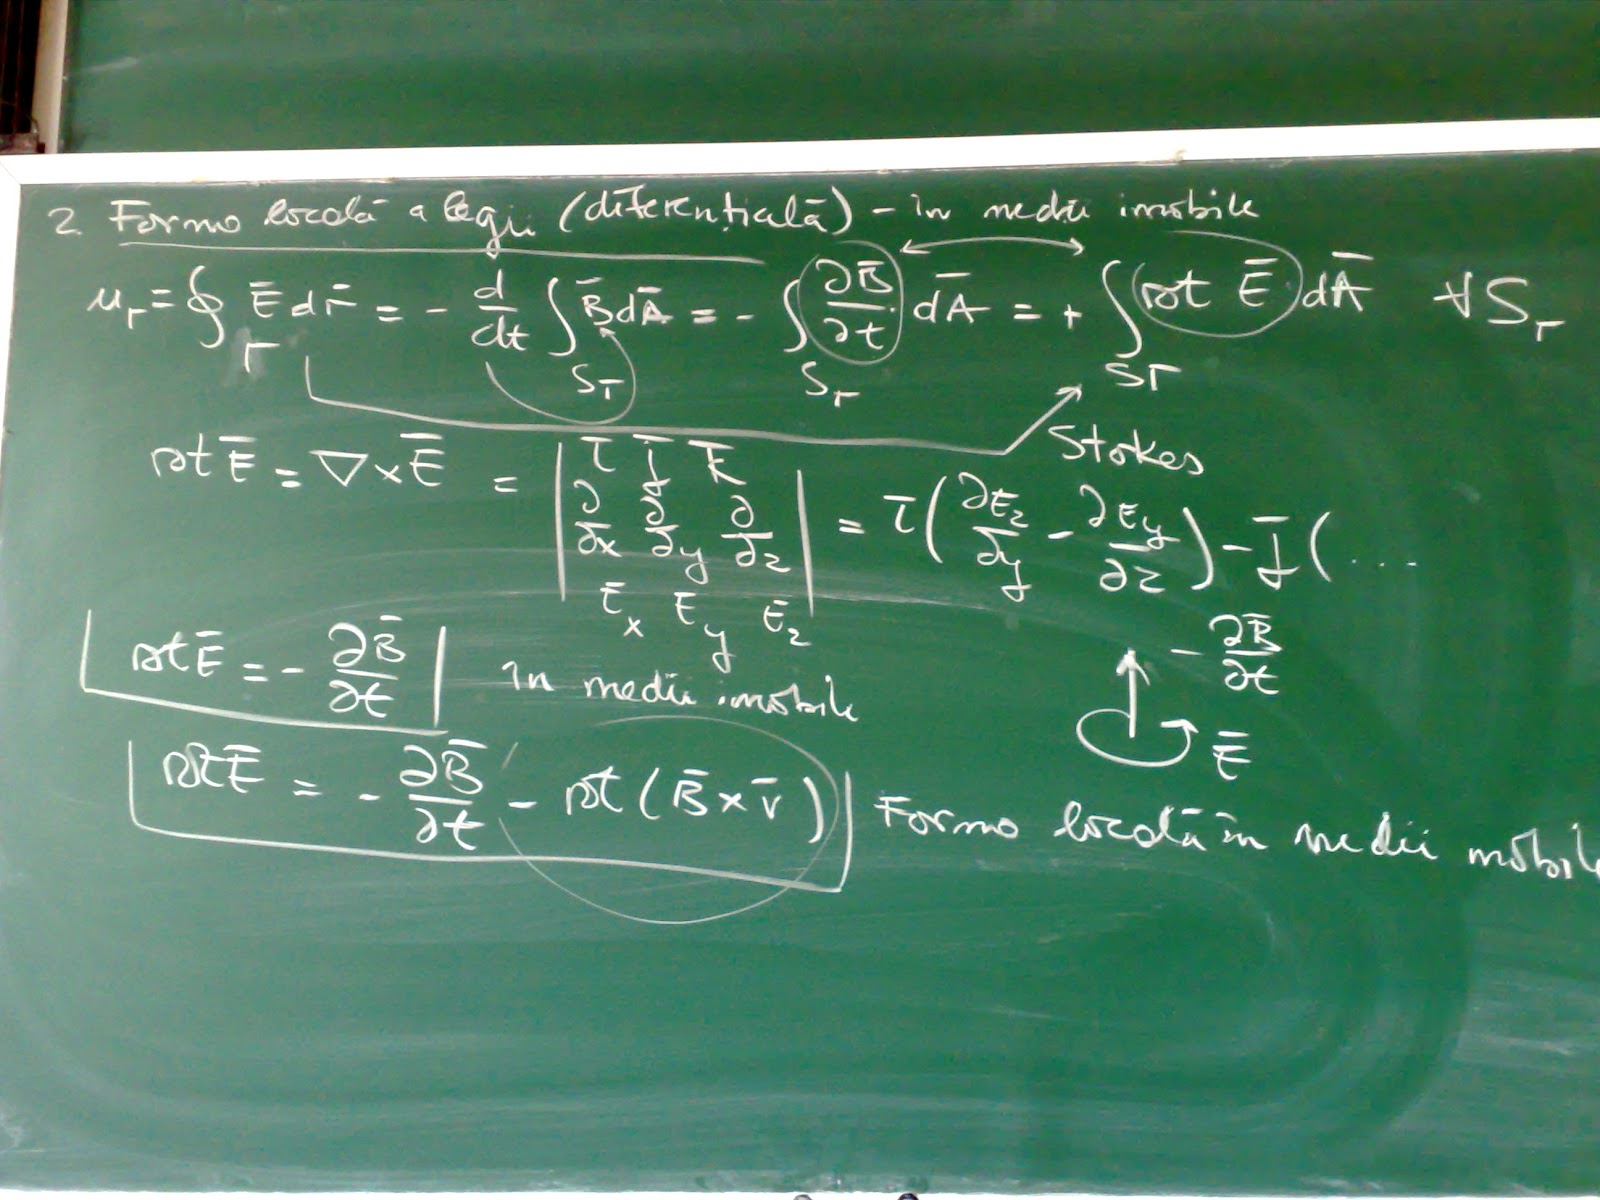 2. Forma locală a legii (diferențială) – în medii imobile
u_Γ = ∮_Γ E̅ dr̅ = - d/dt ∫_{S_Γ} B̅ dA̅ = - ∫_{S_Γ} ∂B̅/∂t dA̅ = + ∫_{S_Γ} rot E̅ dA̅ ∀ S_Γ
Stokes
rot E̅ = ∇ × E̅ = | i̅ j̅ k̅ ; ∂/∂x ∂/∂y ∂/∂z ; E_x E_y E_z | = i̅ ( ∂E_z/∂y - ∂E_y/∂z ) - j̅ ( ...
rot E̅ = - ∂B̅/∂t în medii imobile
- ∂B̅/∂t
E̅
rot E̅ = - ∂B̅/∂t - rot ( B̅ × v̅ ) Forma locală în medii mobile